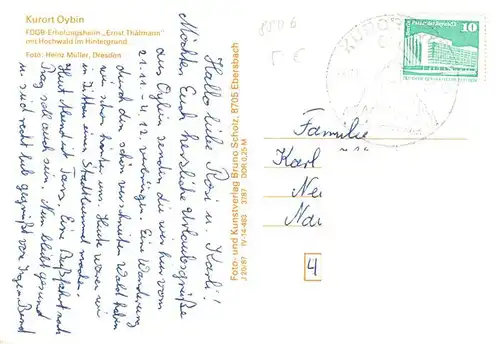 Kurort Oybin
FDGB-Erholungsheim „Ernst Thälmann“
mit Hochwald im Hintergrund
Foto: Heinz Müller, Dresden
Hallo liebe Rosi u. Karli!
Möchten Euch herzliche Urlaubsgrüße
aus Oybin senden, die wir hier vom
21.11.-4.12. verbringen. Eine Wanderung
durch den schön verschneiten Wald haben
wir schon hinter uns. Heute waren wir
in Zittau einen Stadtbummel machen.
Heut Abend ist Tanz. Eine Busfahrt nach
Prag soll auch sein. Nun bleibt gesund
u. seid recht lieb gegrüßt von
Bernd
Foto- und Kunstverlag Bruno Scholz, 8705 Ebersbach
J 20/87 IV-14-483 3787 DDR 0,25 M
KURORT
10
Familie
Karl
Ne
4